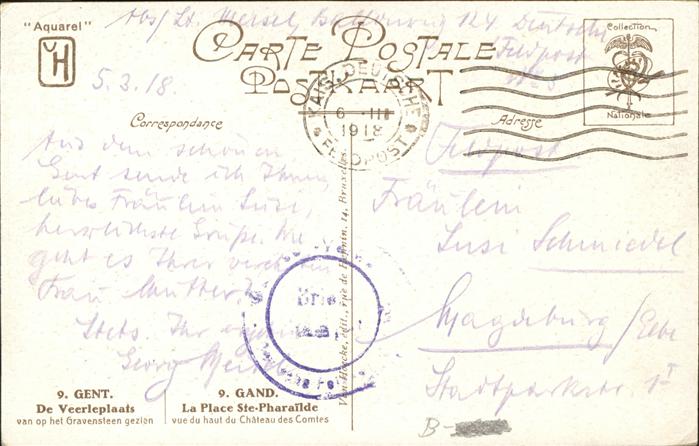 "Aquarel"
Abs/ Lt. Deutsche
Feldpost
CARTE POSTALE
POSTKAART
Collection
Nationale
5.3.18.
KAIS. DEUTSCHE
6 III
1918
FELDPOST
Correspondance
Adresse
Aus dem schönen
Gent sende ich Ihnen,
liebes Fräulein Susi,
herzlichste Grüße. Wie
geht es Ihrer verehrten
Frau Mutter?
Stets Ihr
Georg
Feldpost
Fräulein
Susi Schmiedel
Magdeburg/Elbe
Stadtparkstr. 1
Brie
édit., rue de 14, Bruxelles
9. GENT.
De Veerleplaats
van op het Gravensteen gezien
9. GAND.
La Place Ste-Pharaïlde
vue du haut du Château des Comtes
B-